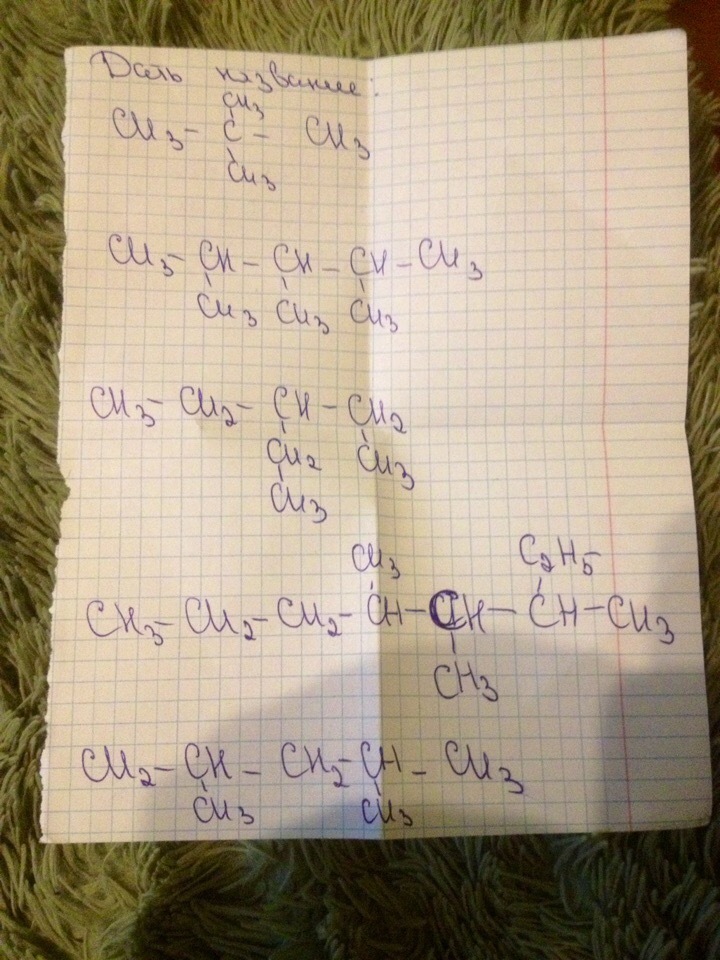 Дать название:
CH3
CH3- C - CH3
CH3
CH3- CH - CH - CH - CH3
CH3 CH3 CH3
CH3- CH2- CH - CH2
CH2 CH3
CH3
CH3 C2H5
CH3- CH2- CH2- CH- CH- CH- CH3
CH3
CH2- CH - CH2- CH - CH3
CH3 CH3